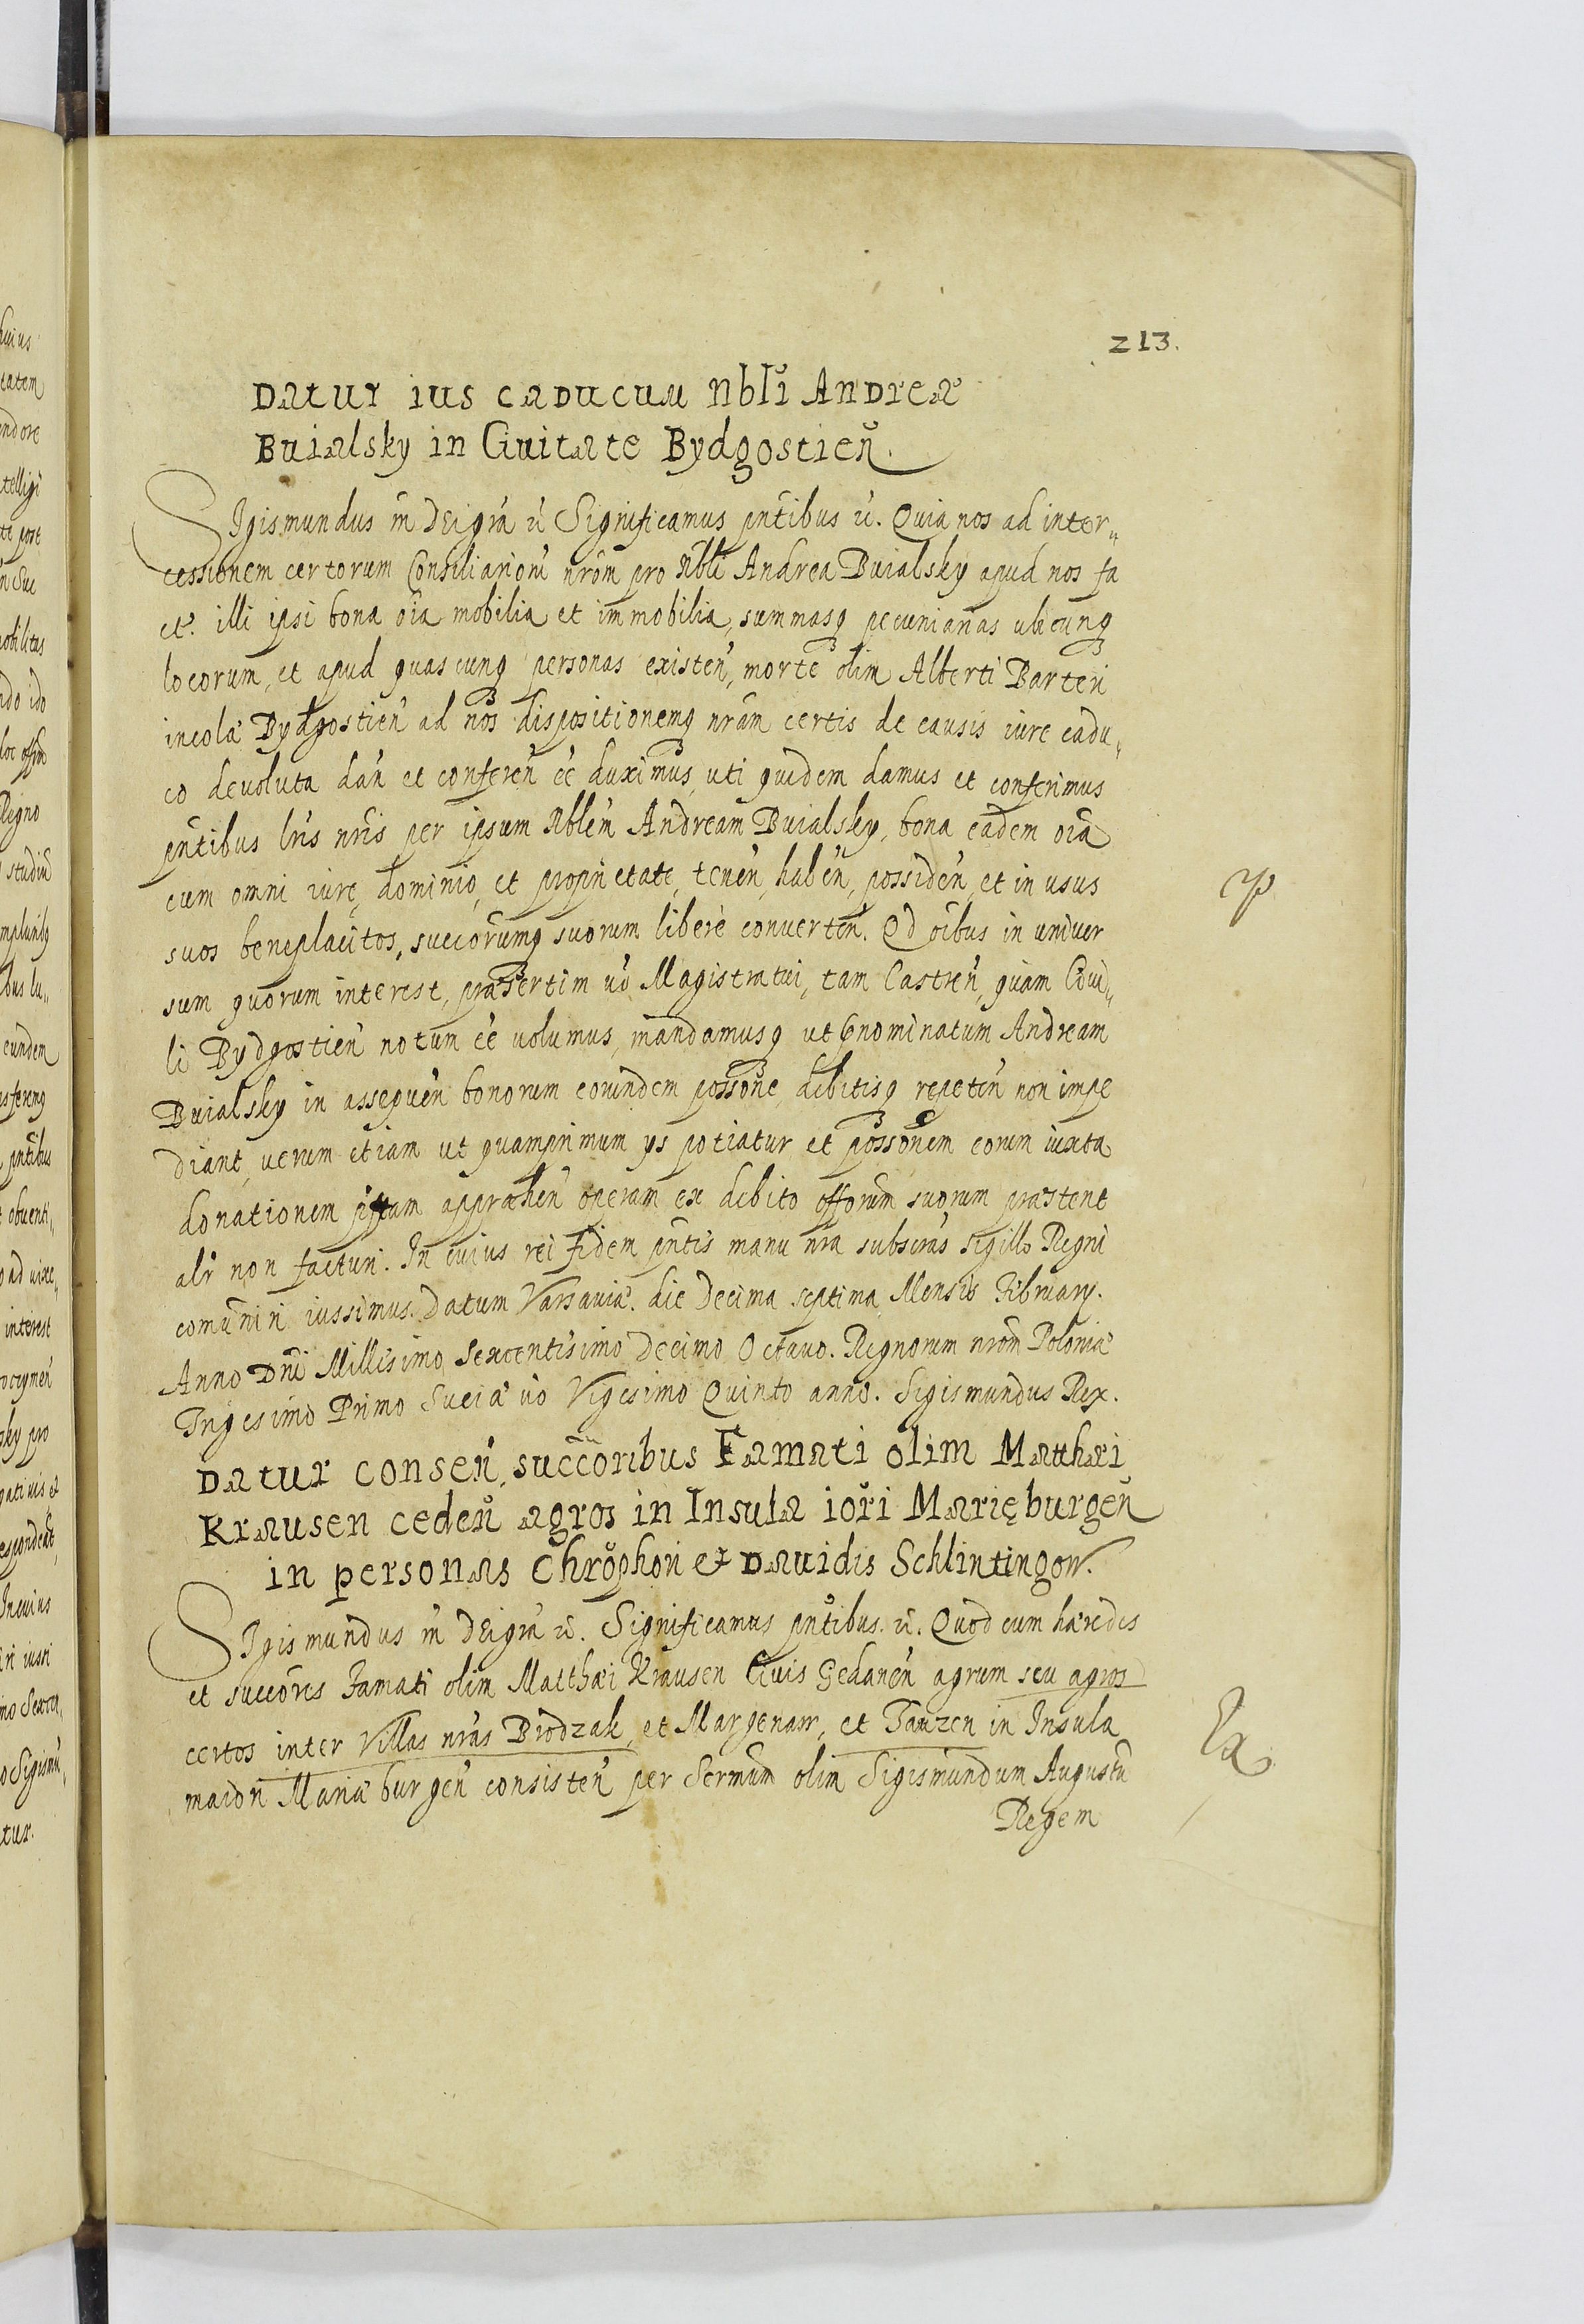 213.
Datur ius caducum Nbli Andreæ
Buialsky in Ciuitate Bydgostien̄.
Sigismundus III DEi gra̅ rc̄ Significamus pn̄tibus rc̄. Quia nos ad inter„
cessionem certorum Consiliariom̄ nrōm pro Nbli Andrea Buialsky apud nos fa
ct. illi ipsi bona oīa mobilia et immobilia, summasq̃ pecuniarias ubicunq̃
locorum, et apud quascunq̃ personas existen̄, morte olim Alberti Barteri
incolæ Bydgostien̄ ad nos dispositionemq̃ nrām certis de causis iure cadu„
co devoluta dan̄ et conferen̄ eē duximus, uti quidem damus et conferimus
pn̄tibus lrīs nrīs per ipsum Nblem̄ Andream Buialsky, bona eadem oīa
cum omni iure, dominio, et proprietate, tenen̄, haben̄, possiden̄, et in usus
suos beneplacitos, succōrumq̃ suorum liberè conuerten̄. Qd oībus in univer
sum quorum interest, præsertim uō Magistratui, tam Castren̄, quam Ciui„
li Bydgostien̄ notum eē uolumus, mandamusq̃ ut pnominatum Andream
Buialsky in assequen̄ bonorum eorundem possōne, debitisq̃ repeten̄ non impe
diant, uerum etiam ut quamprimum ys potiatur et possōnem eorum iuxta
donationem istam appræhen̄ operam ex debito offōrum suorum præstent
alr̄ non facturi. In cuius rei fidem pn̄tis manu nrā subscrās sigillo Regni
com̄uniri iussimus. Datum Varsauiæ. die Decima septima Mensis Februarÿ.
Anno Dnī Millesimo Sexcentesimo Decimo Octauo. Regnorum nrōm Poloniæ
Trigesimo Primo Sueciæ uō Vigesimo Quinto anno. Sigismundus Rex.
Datur consen̄ succōribus Famati olim Matthæi
Krausen ceden̄ agros in Insula iori Marięburgen̄
in personas Chrōphori et Dauidis Schlintingow.
Sigismundus III DEi gra̅ rc̄. Significamus pn̄tibus. rc̄. Quod cum hæredes
et succōres Famati olim Matthæi Krausen Ciuis Gedanen̄ agrum seu agros
certos inter Villas nrās Brodzak, et Margenaw, et Tanzen in Insula
maiori Mariæburgen̄ consisten̄ per Sermum̄ olim Sigismundum Augustū
Regem